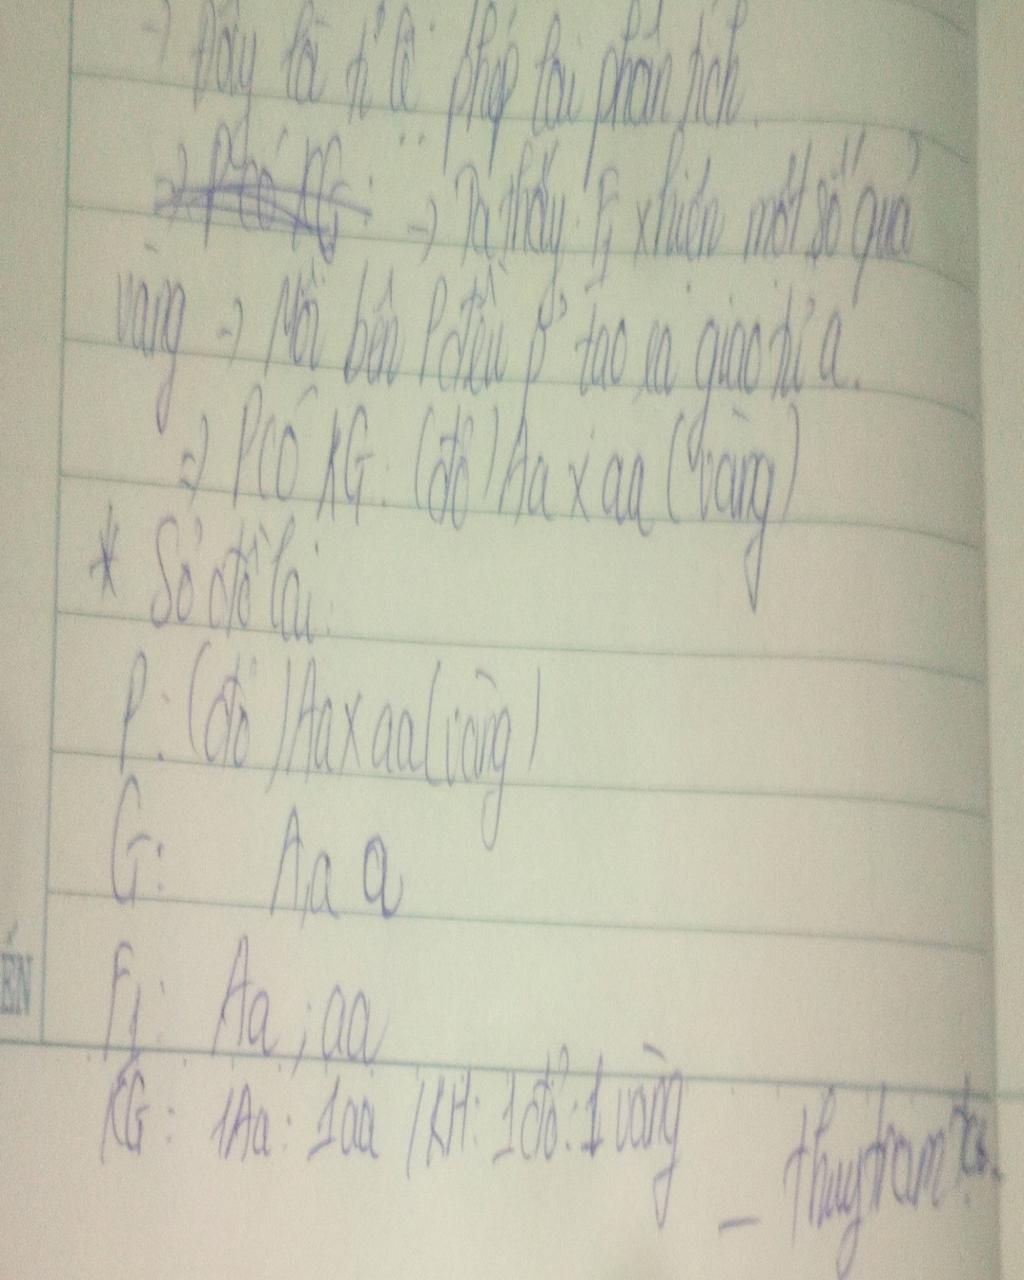 → Đây là tỉ lệ phép lai phân tích.
⇒ P có KG: → Ta thấy F1 x hiện một số quả
vàng ⇒ Mỗi bên P đều p² tạo ra giao tử a.
⇒ P có KG: (đỏ) Aa x aa (vàng)
* Sơ đồ lai:
P: (đỏ) Aa x aa (vàng)
G: A, a a
F1: Aa ; aa
ẾN
KG: 1Aa : 1aa / KH: 1 đỏ : 1 vàng
_ thuytram